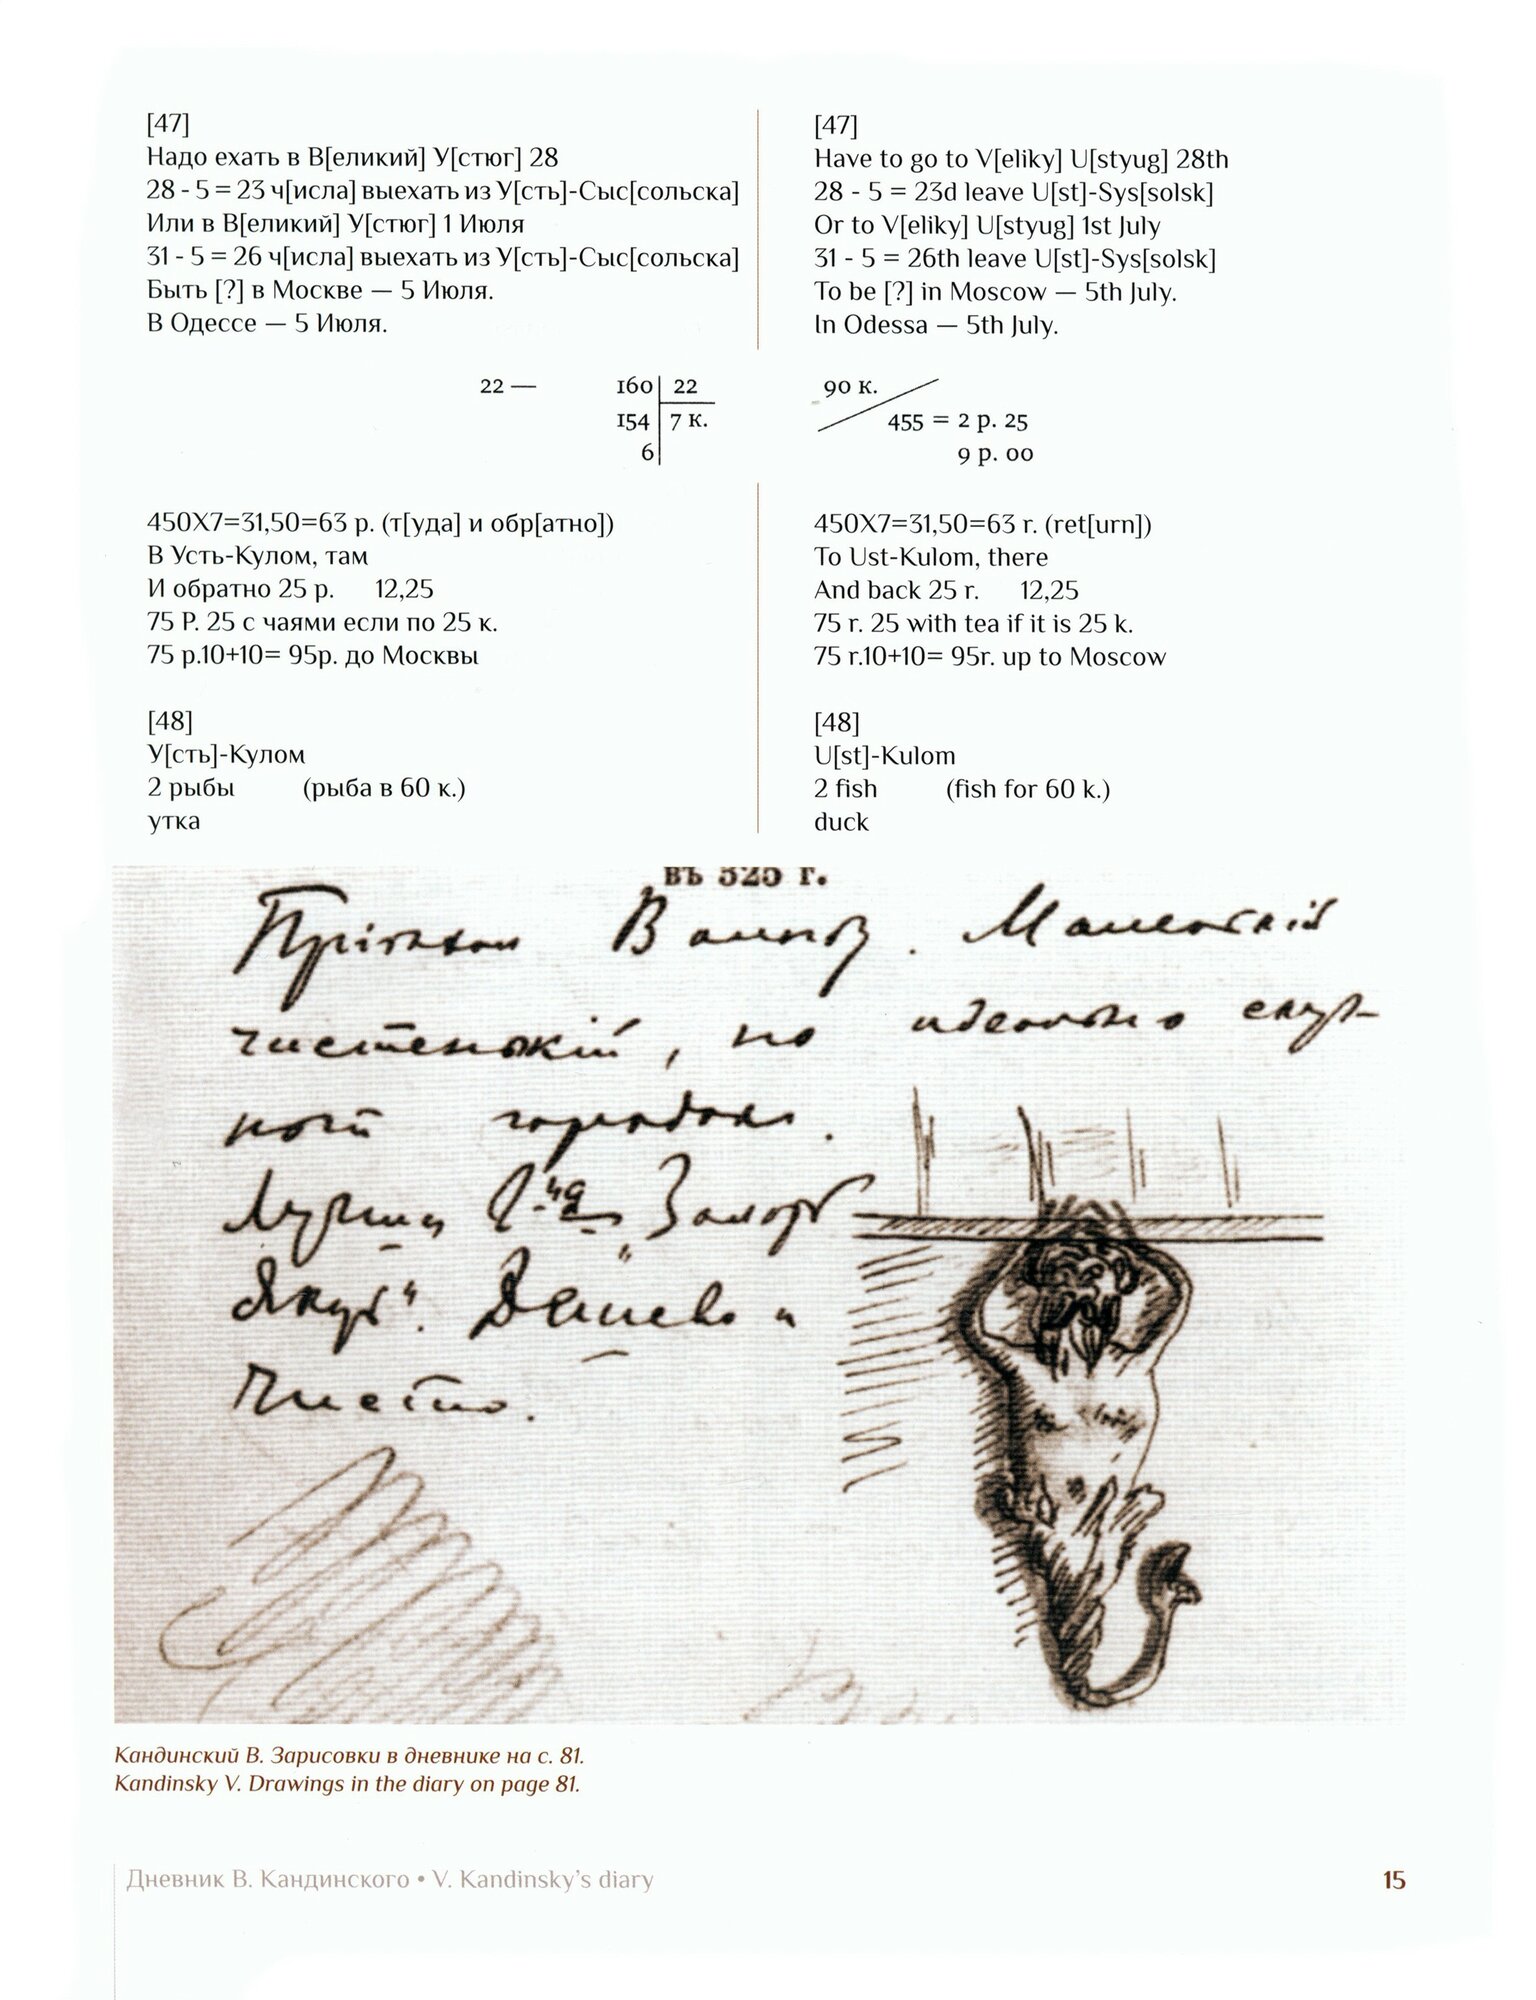 [47]
Надо ехать в В[еликий] У[стюг] 28
28 - 5 = 23 ч[исла] выехать из У[сть]-Сыс[сольска]
Или в В[еликий] У[стюг] 1 Июля
31 - 5 = 26 ч[исла] выехать из У[сть]-Сыс[сольска]
Быть [?] в Москве — 5 Июля.
В Одессе — 5 Июля.
[47]
Have to go to V[eliky] U[styug] 28th
28 - 5 = 23d leave U[st]-Sys[solsk]
Or to V[eliky] U[styug] 1st July
31 - 5 = 26th leave U[st]-Sys[solsk]
To be [?] in Moscow — 5th July.
In Odessa — 5th July.
22 — 160 22 90 к.
154 7 к. 455 = 2 р. 25
6 9 р. 00
450X7=31,50=63 р. (т[уда] и обр[атно])
В Усть-Кулом, там
И обратно 25 р. 12,25
75 Р. 25 с чаями если по 25 к.
75 р.10+10= 95р. до Москвы
[48]
У[сть]-Кулом
2 рыбы (рыба в 60 к.)
утка
450X7=31,50=63 r. (ret[urn])
To Ust-Kulom, there
And back 25 r. 12,25
75 r. 25 with tea if it is 25 k.
75 r.10+10= 95r. up to Moscow
[48]
U[st]-Kulom
2 fish (fish for 60 k.)
duck
въ 525 г.
Маленькій
чистенькій, но идеально скуч-
ной городок.
Дешево и
Чисто.
Кандинский В. Зарисовки в дневнике на с. 81.
Kandinsky V. Drawings in the diary on page 81.
Дневник В. Кандинского • V. Kandinsky's diary
15